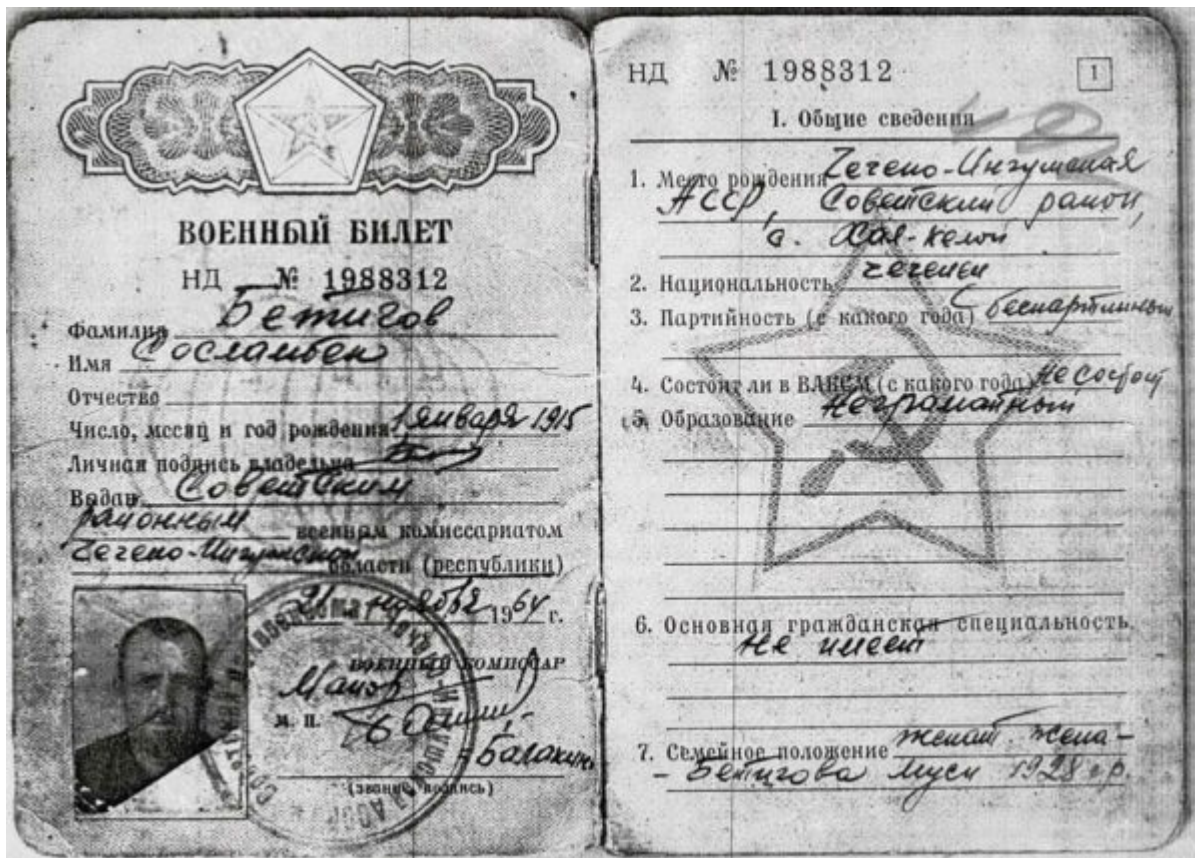 ВОЕННЫЙ БИЛЕТ
НД № 1988312
Фамилия Бетигов
Имя Сосламбек
Отчество
Число, месяц и год рождения 1 января 1915
Личная подпись владельца
Выдан Советским
районным военным комиссариатом
Чечено-Ингушской области (республики)
21 ноября 1964 г.
ВОЕННЫЙ КОМИССАР
Майор
М. П.
Балакин
(звание, подпись)
НД № 1988312
1
I. Общие сведения
1. Место рождения Чечено-Ингушская
АССР, Советский район,
с. Хал-Келой
2. Национальность чеченец
3. Партийность (с какого года) беспартийный
4. Состоит ли в ВЛКСМ (с какого года) Не состоит
5. Образование Неграмотный
6. Основная гражданская специальность
Не имеет
7. Семейное положение женат. Жена -
- Бетигова Муси 1928 г.р.